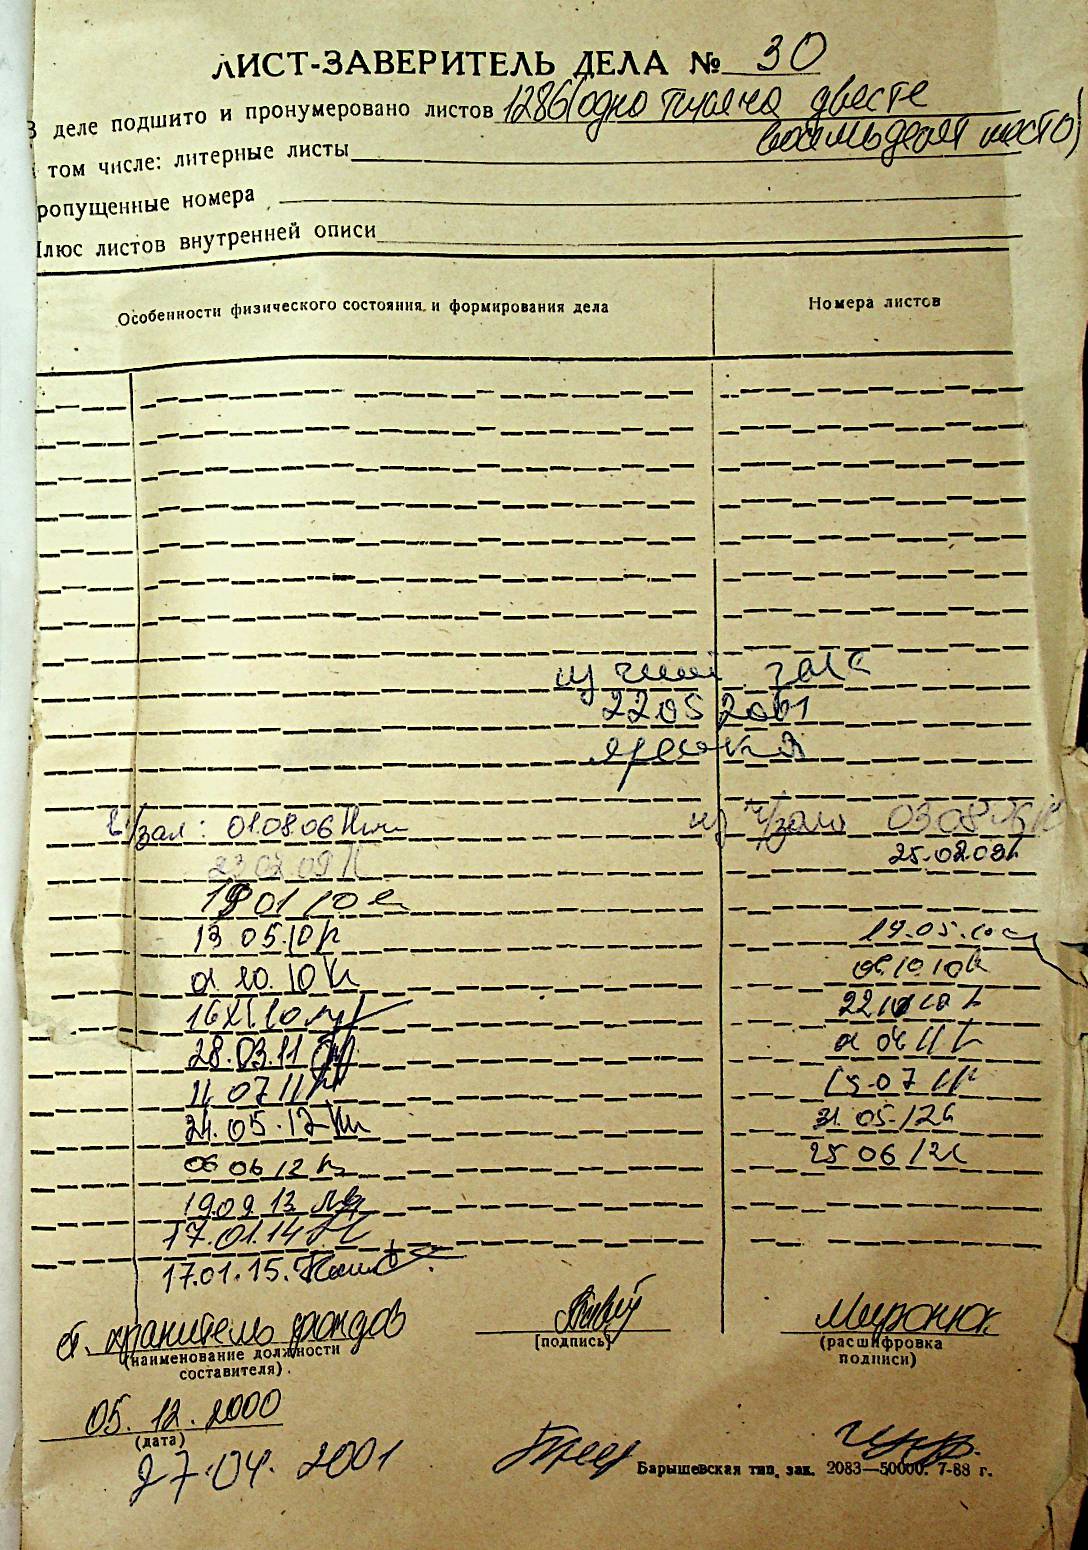 ЛИСТ-ЗАВЕРИТЕЛЬ ДЕЛА № 30
В деле подшито и пронумеровано листов 1286 (одна тысяча двести
восемьдесят шесть)
том числе: литерные листы
ропущенные номера
Плюс листов внутренней описи
Особенности физического состояния и формирования дела
Номера листов
из чит зала
22 05 2001
ч/зал: 01.08.06
из ч/зала 03 08 06
23 02 09
25.02.09
19 01 10
13 05.10
17.05.10
01 10.10
06 10 10
16 XI.10
22 10
28.03.11
01 04 11
11 07 11
15.07 11
24.05.12
31 05.12
06 06 12
25 06 12
19.09 13
17.01.14
17.01.15.
ст. хранитель фондов
Миронюк
(наименование должности
составителя).
(подпись)
(расшифровка
подписи)
05.12.2000
(дата)
27.04.2001
Барышевская тип. зак. 2083—50000. 7-88 г.